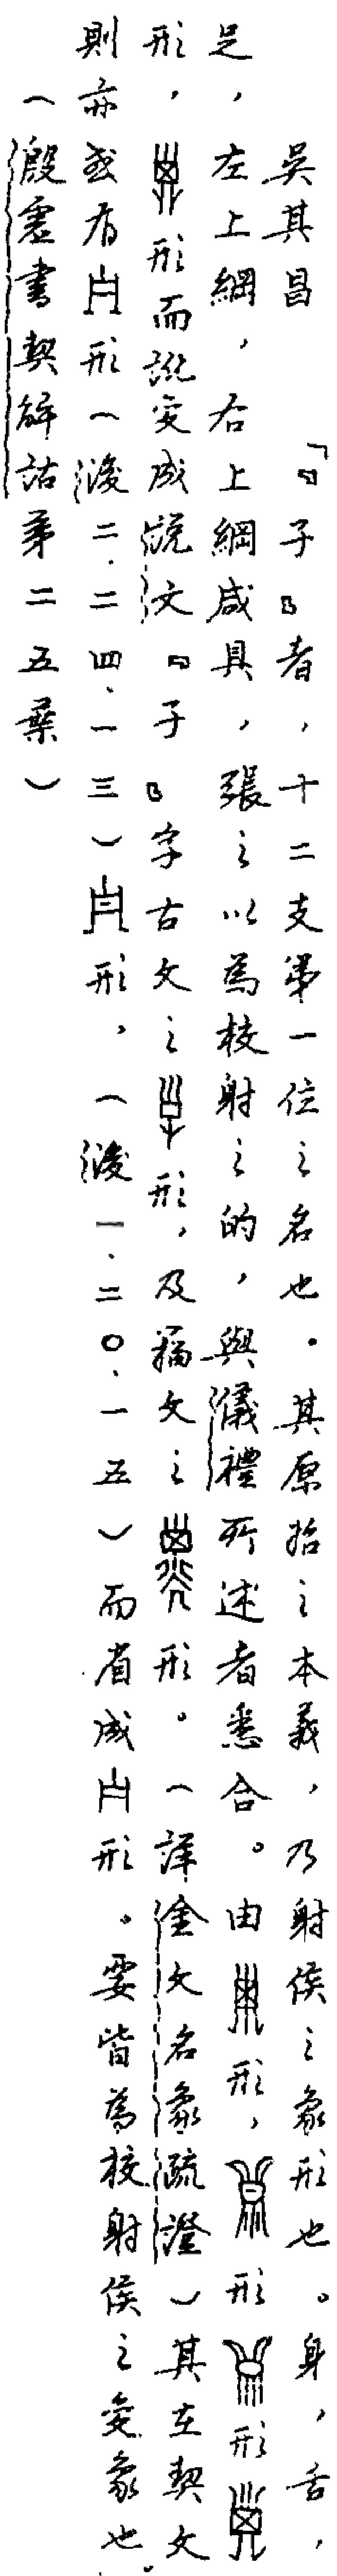 吳其昌　「『子』者，十二支第一位之名也。其原始之本義，乃射侯之象形也。身，舌，
足，左上綱，右上綱咸具，張之以為校射之的，與儀禮所述者悉合。由形，形形
形，形而譌変成說文『子』字古文之形，及籀文之形。（詳金文名象疏證）其在契文
則亦或有形（後二．二四．一三）形，（後一．二〇．一五）而省成形。要皆為校射侯之変象也。
（殷虛書契解詁第二五葉）